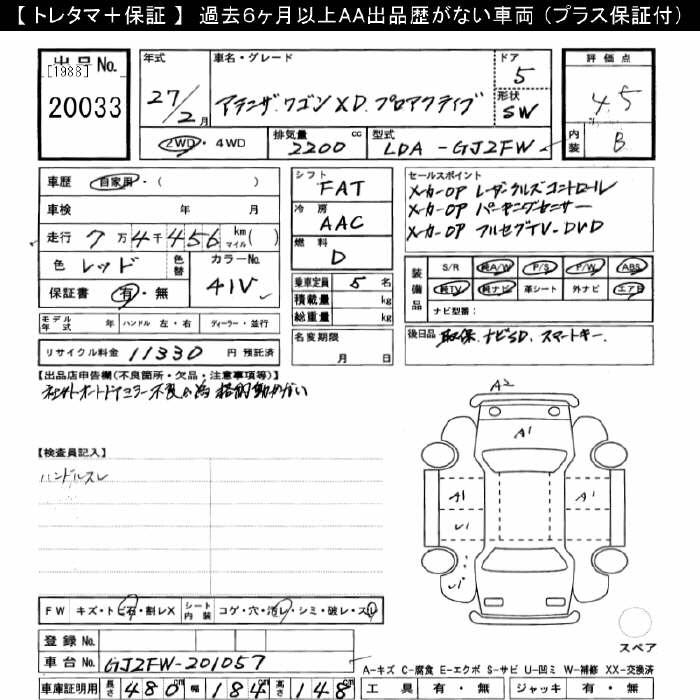 【 トレタマ＋保証 】 過去6ヶ月以上AA出品歴がない車両（プラス保証付）
出品No.
[1988]
20033
年式
27/2月
車名・グレード
アテンザ.ワゴン XD.プロアクティブ
ドア
5
形状
SW
2WD・4WD
排気量
2200 cc
型式
LDA-GJ2FW
評価点
4.5
内装
B
車歴 自家用・( )
車検 年 月
走行 7万4千456 km マイル( )
色 レッド
色替
カラーNo.
41V
保証書 有・無
シフト
FAT
冷房
AAC
燃料
D
乗車定員 5名
積載量 kg
総重量 kg
セールスポイント
メーカーOP レーダークルーズコントロール
メーカーOP パーキングセンサー
メーカーOP フルセグTV-DVD
装備品
S/R 純A/W P/S P/W ABS
純TV 純ナビ 革シート 外ナビ エアB
ナビ型番：
モデル年式 年 ハンドル 左・右 ディーラー・並行
名変期限
月 日
後日品 取保.ナビSD.スマートキー.
リサイクル料金 11330 円 預託済
【出品店申告欄(不良箇所・欠品・注意事項等)】
A2
A1
【検査員記入】
ハンドルスレ
A1
A1
U1
U1
FW キズ・トビ石・割レX
シート内装 コゲ・穴・汚レ・シミ・破レ・スレ
登録No.
スペア
車台No. GJ2FW-201057
A-キズ C-腐食 E-エクボ S-サビ U-凹ミ W-補修 XX-交換済
車庫証明用 長さ 480cm 幅 184cm 高さ 148cm
工具 有・無 ジャッキ 有・無